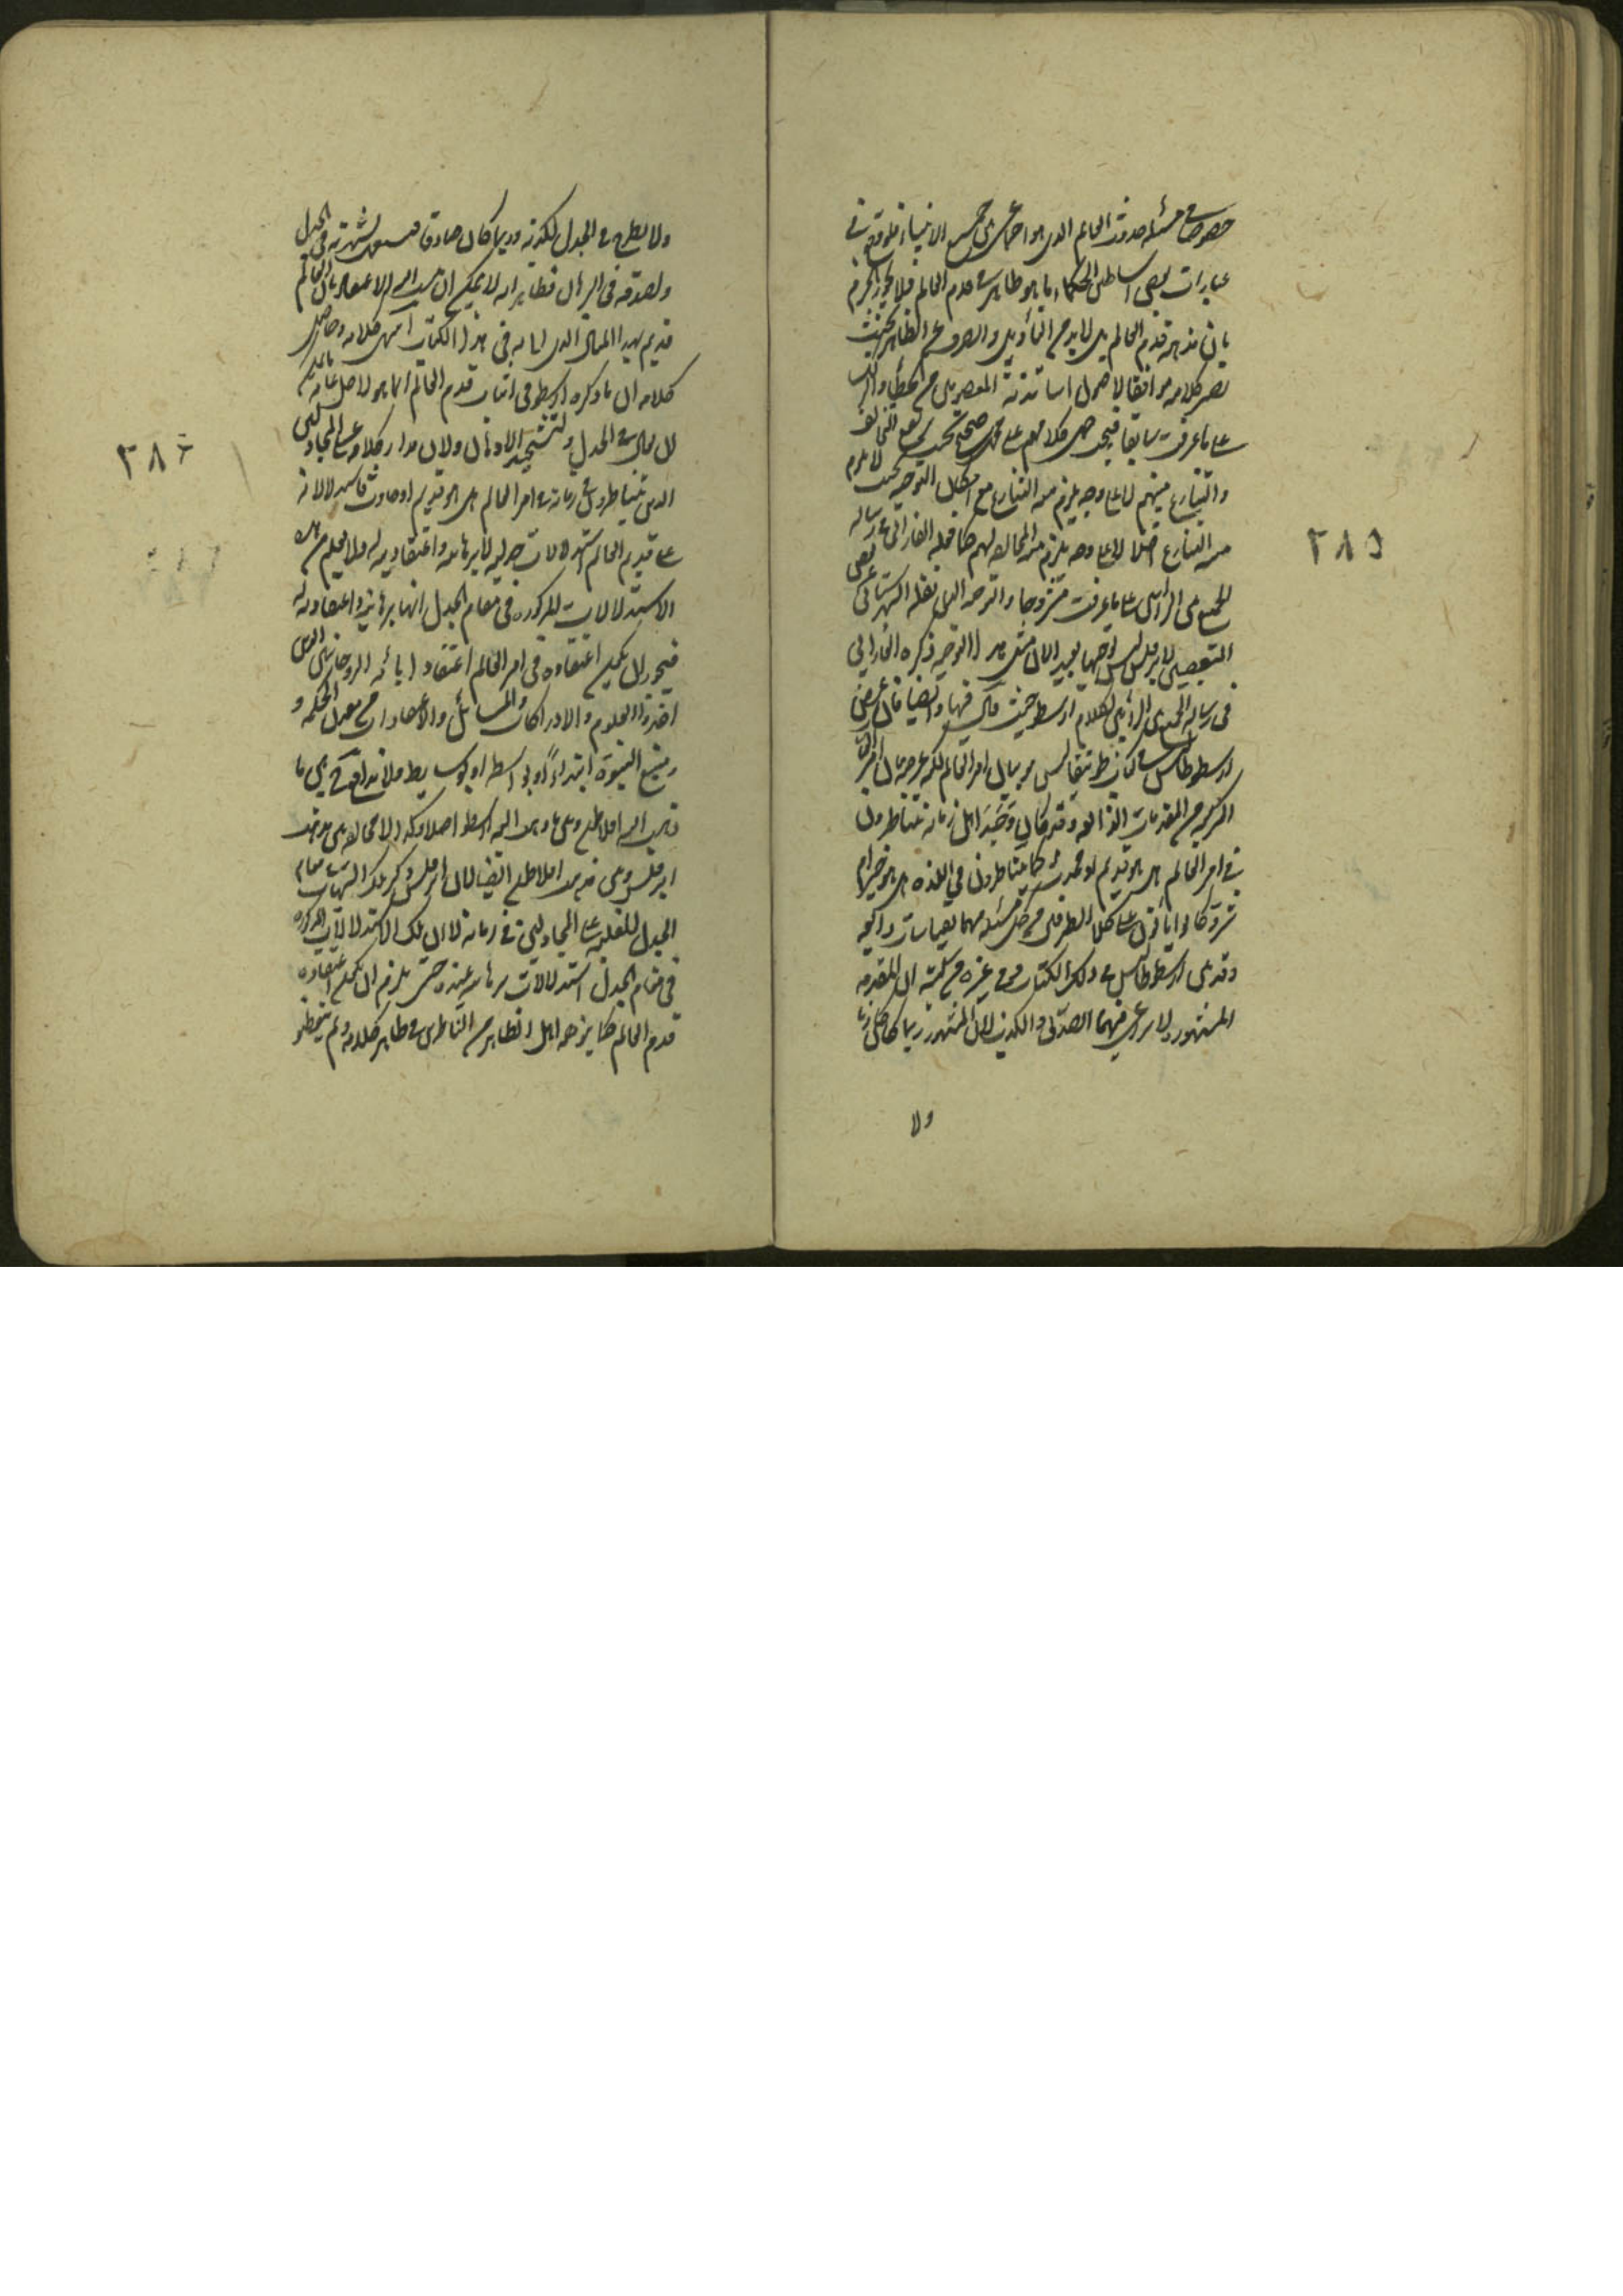 خصوصا في مسئلة حدوث العالم الذي هو اجماعي جميع الانبياء فلو وقع في
عبارات بعض اساطين الحكماء ما هو ظاهر في قدم العالم فلا يجوز الجزم
بان مذهبه قدم العالم بل لا بد من التأويل والصرف عن الظاهر بحيث
يصير كلامه موافقا لاصول اساتذته المعصومين من الخطأ والزلل
على ما عرفت سابقا فيجب حمل كلامهم على محمل صحيح بحيث التخالف
والتنازع بينهم لا على وجه يلزم منه التنازع مع امكان التوجيه بحيث لا يلزم
منه التنازع اصلا لا على وجه يلزم منه المخالفة لهم كما فعله الفارابي في رسالة
الجمع بين الرأيين على ما عرفت مشروحا والتوجيه الذي نقله الشهرستاني عن بعض
المتعصبين لابرقلس ليس توجيها بعيدا لان مثل هذا التوجيه ذكره الفارابي
في رسالة الجمع بين الرأيين لكلام ارسطو حيث قال فيها وايضا فان غرض
ارسطوطاليس في كتاب طوبيقا ليس هو بيان امر العالم لكنه غرضه بيان امر القياسات
المركبة من المقدمات الذائعة وقد كان وجد اهل زمانه يتناظرون
في امر العالم هل هو قديم او محدث كما يتناظرون في اللذة هل هو خير ام
شر وكانوا يأتون على كلا الطرفين من كل مسئلة منهما بقياسات ذائعة
وقد بين ارسطوطاليس في ذلك الكتاب وفي غيره من كتبه ان المقدمة
المشهورة لا يراعى فيها الصدق والكذب لان المشهور ربما كان كاذبا
ولا
٣٨٥
ولا يطرح في الجدل لكذبه وربما كان صادقا فيستعمل لشهرته في الجدل
ولصدقه في البرهان فظاهر انه لا يمكن ان ينسب اليه الاعتقاد بان العالم
قديم بهذا المثال الذي اتى به في هذا الكتاب انتهى كلامه وحاصل
كلامه ان ما ذكره ارسطو في اثبات قدم العالم انما هو
في الجدل ولتشحيذ الاذهان ولان مدار كلامه على المجادلين
الذين يتناظرون في زمانه في امر العالم هل هو قديم او حادث فاستدلالاته
على قدم العالم استدلالات جدلية لا برهانية واعتقادية له ولا يعلم من هذه
الاستدلالات المذكورة في مقام الجدل انها برهانية واعتقادية له
فيجوز ان يكون اعتقاده في امر العالم اعتقاد ابائه الروحانيين الذين
اخذوا العلوم والادراكات والمسائل والاعتقادات من معدن الحكمة و
منبع النبوة ابتداءً او بواسطة او بوسايط فلا تدافع بين ما
ذهب اليه افلاطون وبين ما ذهب اليه ارسطو اصلا وكذا لا مخالفة بين مذهب
ابرقلس وبين مذهب افلاطون ايضا لان ابرقلس ذكر تلك الشبهات مقام
الجدل للغلبة على المجادلين في زمانه لا ان تلك الاستدلالات المذكورة
في مقام الجدل استدلالات برهانية عنده حتى يلزم ان يكون اعتقاده
قدم العالم كما يزعمه اهل الظاهر من الناظرين في ظاهر كلامه ولم يتفطنوا
٣٨٦